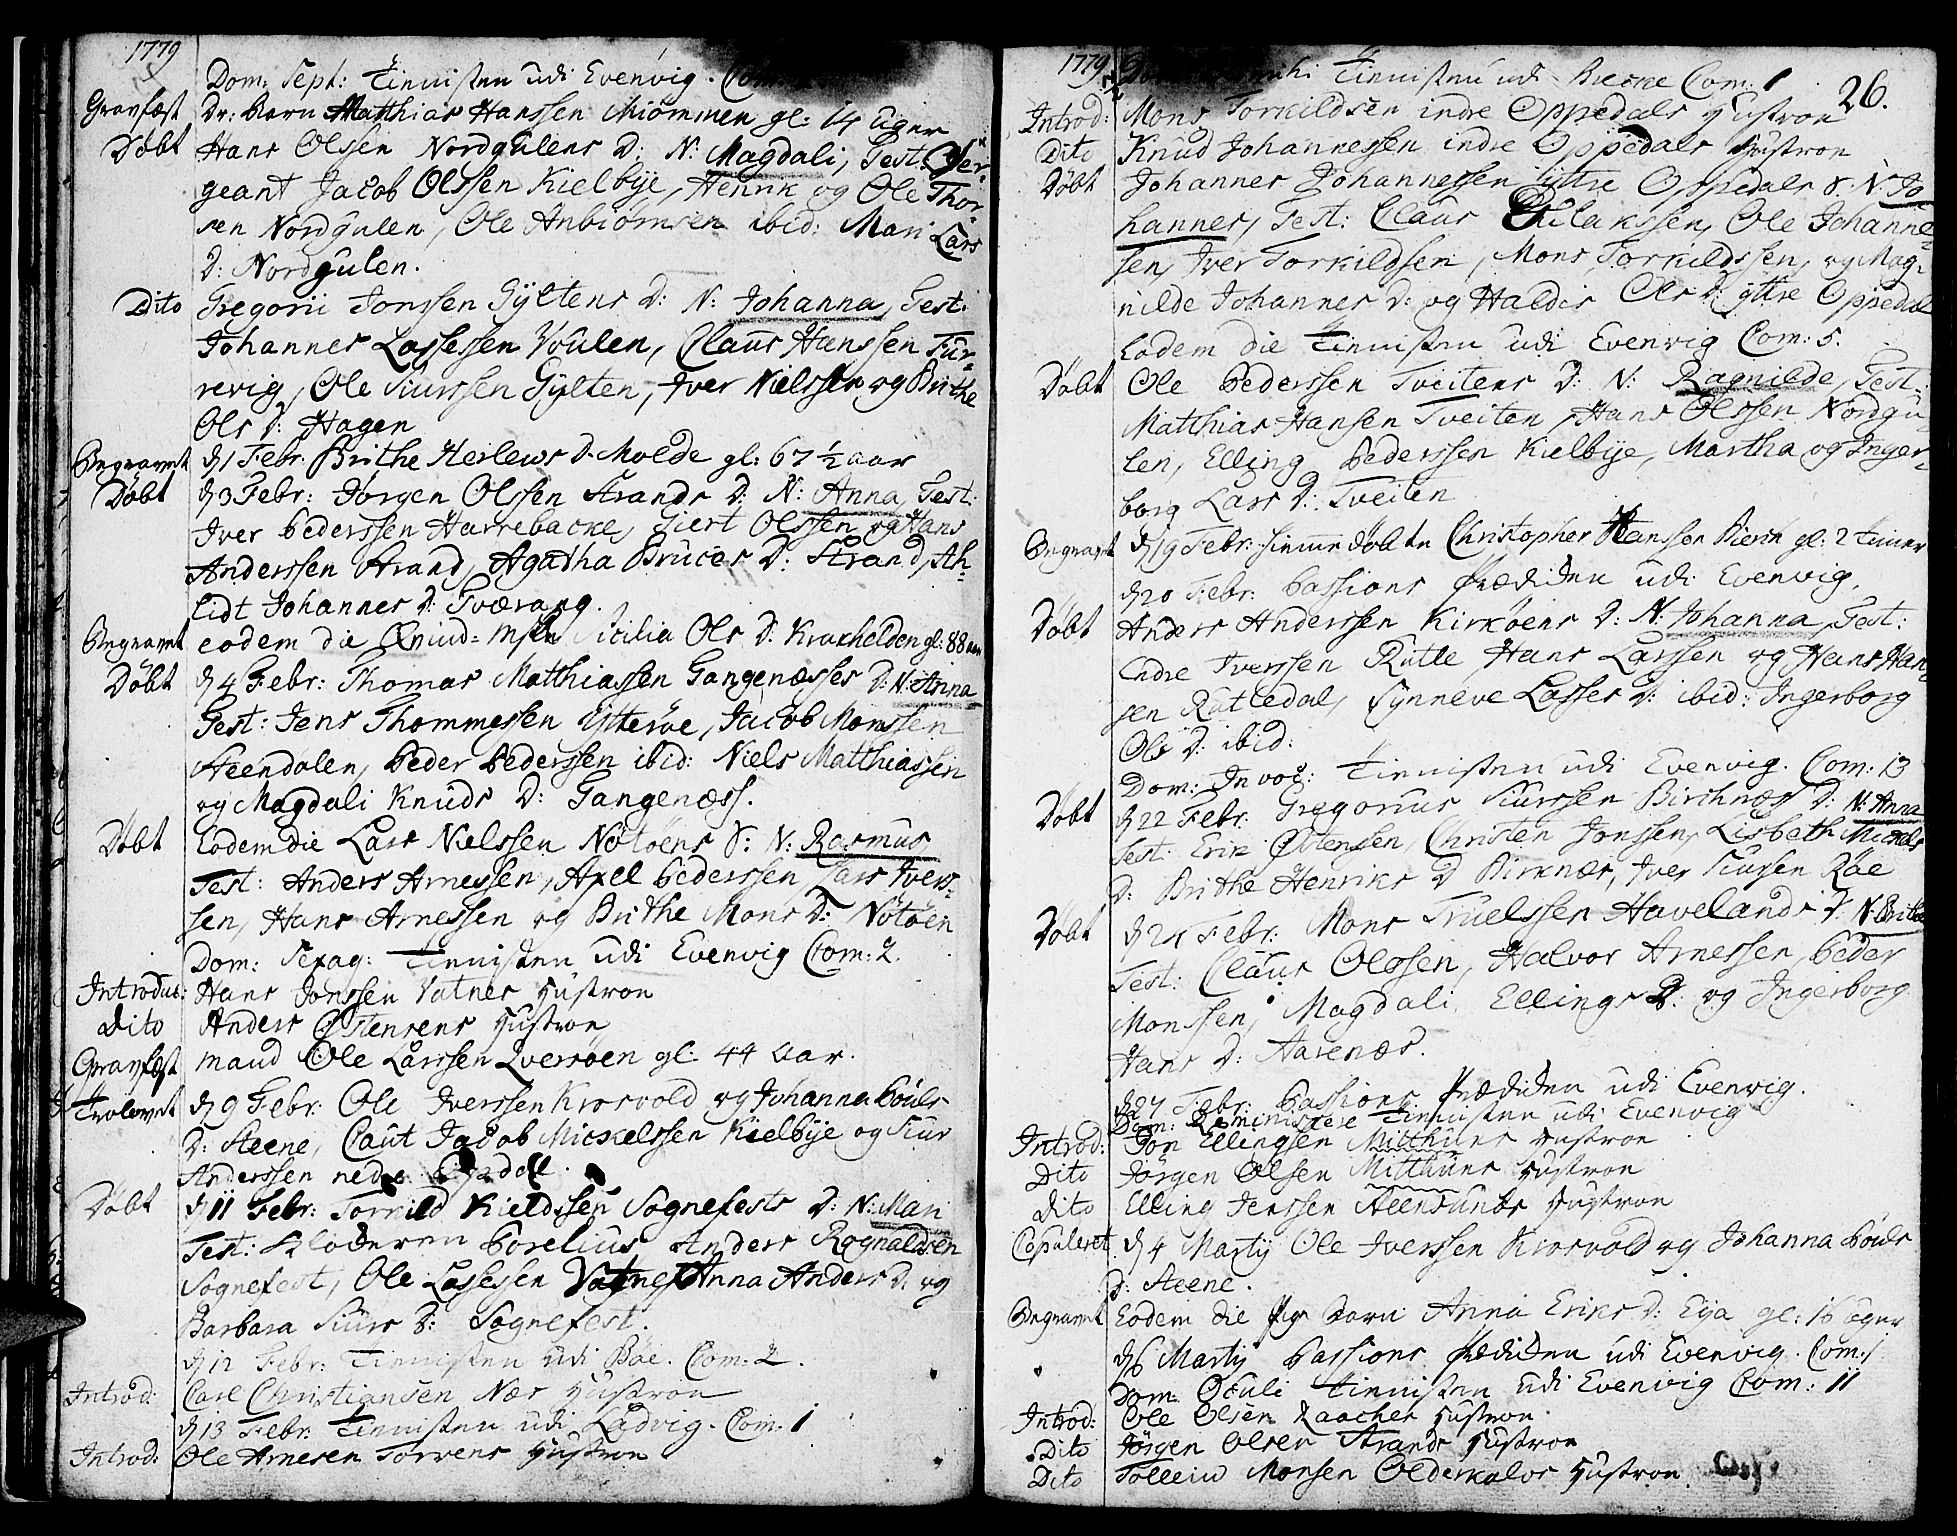 1779
Dom: Sept: Tienisten udi Evenvig.
Gravfæst Dr: barn Matthias Hanssen Miømmen gl: 14 uger
Døbt Hans Olssen Nordgulens D: N: Magdali, Test: Ser-
geant Jacob Olssen Kielbye, Henrik og Ole Thor-
sen Nordgulen, Ole Anbiørnsen ibid: Mari Lars
D: Nordgulen.
Dito Gregorii Jonssen Gyltens D: N: Johanna, Test:
Johannes Lassessen Voulen, Claus Hanssen Fur-
revig, Ole Siurssen Gylten, Iver Nielssen og Brithe
Ols D: Hagen
Begravet d 1 Febr. Brithe Herlews D. Molde gl: 67 1/2 aar
Døbt d 3 Febr: Jørgen Olssen Strands D: N: Anna, Test:
Iver Pederssen Harrebacke, Siert Olssen og Hans
Anderssen Strand, Agatha Bruces D: Strand, Ah-
lidt Johannes D: Tværang.
Begravet eodem die Qvind= Cicilia Ols D: Krakhelden gl: 88 aar
Døbt d 4 Febr: Thomas Matthiassen Gangenæsses D: N: Anna
Test: Jens Thommessen Ytterøe, Jacob Monssen
Steendalen, Peder Pederssen ibid: Niels Matthiassen
og Magdali Knuds D: Gangenæss.
Døbt Eodem die Lars Nielssen Nötöens S: N: Rasmus
Test: Anders Arnessen, Axel Pederssen, Lars Ivers-
sen, Hans Arnessen og Brithe Mons D: Nötöen
Dom: Sexag: Tienisten udi Evenvig Com: 2.
Introduc: Hans Jonssen Vatnes Hustroe
Dito Anders Ostensens Hustroe
Gravfæst mand Ole Larssen Qversöen gl: 44 aar.
Trolovet d 9 Febr: Ole Iverssen Krosvold og Johanna Pouls
D: Steene, Caut Jacob Mickelssen Kielbye og Siur
Anderssen nedre
Døbt d 11 Febr: Torkild Kieldssen Sognefests D: N: Mari
Test: Klockeren Borelius Anders Rognaldsen
Sognefest, Ole Lassesen Vatnes Anna Anders D: og
Barbara Siurs D: Sognefest.
d 12 Febr: Tienisten udi Böe. Com: 2.
Introd: Carl Christiansen Næs Hustroe
d 13 Febr: Tienisten udi Ladvig. Com: 1
Introd: Ole Arnesen Torvens Hustroe
1779 Tienisten udi Brecke Com: 1 26.
Introd: Mons Torkildsen indre Oppedals Hustroe
Dito Knud Johannessen indre Oppedals Hustroe
Døbt Johannes Johannessen yttre Oppedals S: N: Jo
hannes, Test: Claus Eilakssen, Ole Johannes-
sen, Iver Torkildsen, Mons Torkildssen, og Mag-
nilde Johannes D: og Haldis Ols D: yttre Oppedal
Eodem die Tienisten udi Evenvig Com: 5.
Døbt Ole Pederssen Tveitens D: N: Ragnilde, Test:
Matthias Hansen Tveiten, Hans Olssen Nordgu-
len, Elling Pederssen Kielbye, Martha og Inger-
borg Lars D: Tveiten
Begravet d 19 Febr: hiemmedøbte Christopher Hanssen gl: 2 timer
d 20 Febr: Passions Prædicken udi Evenvig.
Døbt Anders Anderssen Kirköens D: N: Johanna, Test:
Endre Iverssen Rutle Hans Larssen og Hans Han-
sen Rutledal, Synneve Lasses D: ibid: Ingerborg
Ols D: ibid:
Dom: Invoc: Tienisten udi Evenvig. Com: 13
Døbt d 22 Febr: Gregorius Siurssen Birchnæs D: N: Anna
Test: Erik Ostensen, Christen Jonssen, Lisbeth Mickels
D: Brithe Henriks D Birknæs, Iver Siursen Röe
Døbt d 24 Febr: Mons Truelssen Havelands D: N: Brithe
Test: Claus Olssen, Halvor Arnessen, Peder
Monssen, Magdali Ellings D: og Ingerborg
Hans D: Aarenæs.
d 27 Febr: Passions Prædicken udi Evenvig.
Dom: Reminiscere Tienisten udi Evenvig
Introd: Jon Ellingsen Mitthuns Hustroe
Dito Jørgen Olsen Mitthuns Hustroe
Dito Elling Jenssen Steensunds Hustroe
Copuleret d 4 Martij Ole Iverssen Krosvold og Johanna Pouls
D: Steene.
Begravet Eodem die Pige barn Anna Eriks D: Eya gl: 16 uger
d 6 Martij Passions Prædicken udi Evenvig. Com: 1
Dom: Oculi Tienisten udi Evenvig Com: 11
Introd: Ole Olsen Raaches Hustroe
Dito Jørgen Olsen Strands Hustroe
Dito Tolleiv Monsen Olderkalvs Hustroe.